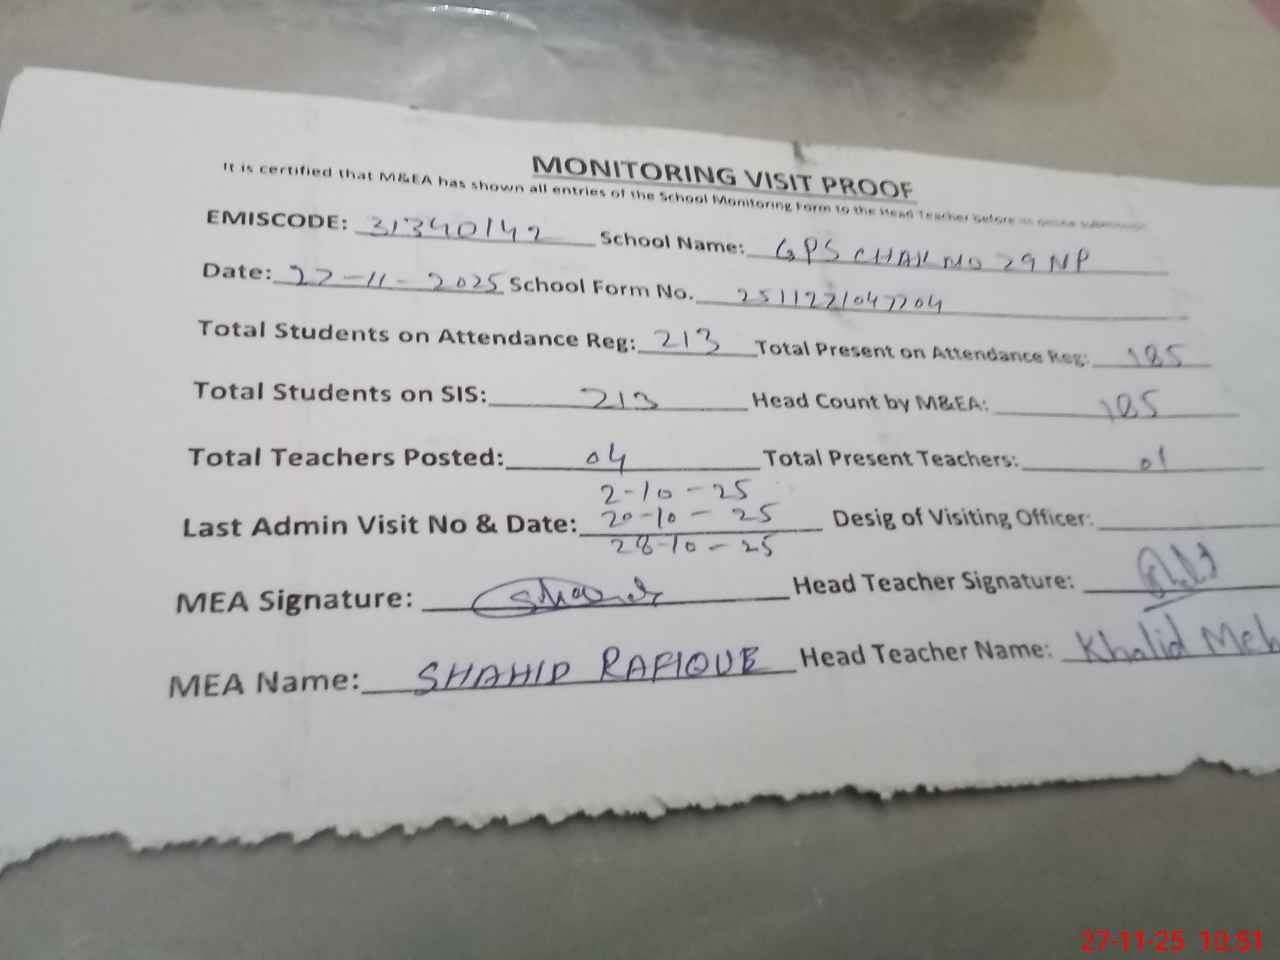 MONITORING VISIT PROOF
It is certified that M&EA has shown all entries of the School Monitoring Form to the Head Teacher before its online submission.
EMISCODE: 31340142 School Name: GPS CHAK NO 29 NP
Date: 22-11-2025 School Form No. 2511221047204
Total Students on Attendance Reg: 213 Total Present on Attendance Reg: 185
Total Students on SIS: 213 Head Count by M&EA: 185
Total Teachers Posted: 04 Total Present Teachers: 01
2-10-25
Last Admin Visit No & Date: 20-10-25 Desig of Visiting Officer:
28-10-25
MEA Signature: Head Teacher Signature:
MEA Name: SHAHID RAFIQUE Head Teacher Name: Khalid Meh
27-11-25 10:51